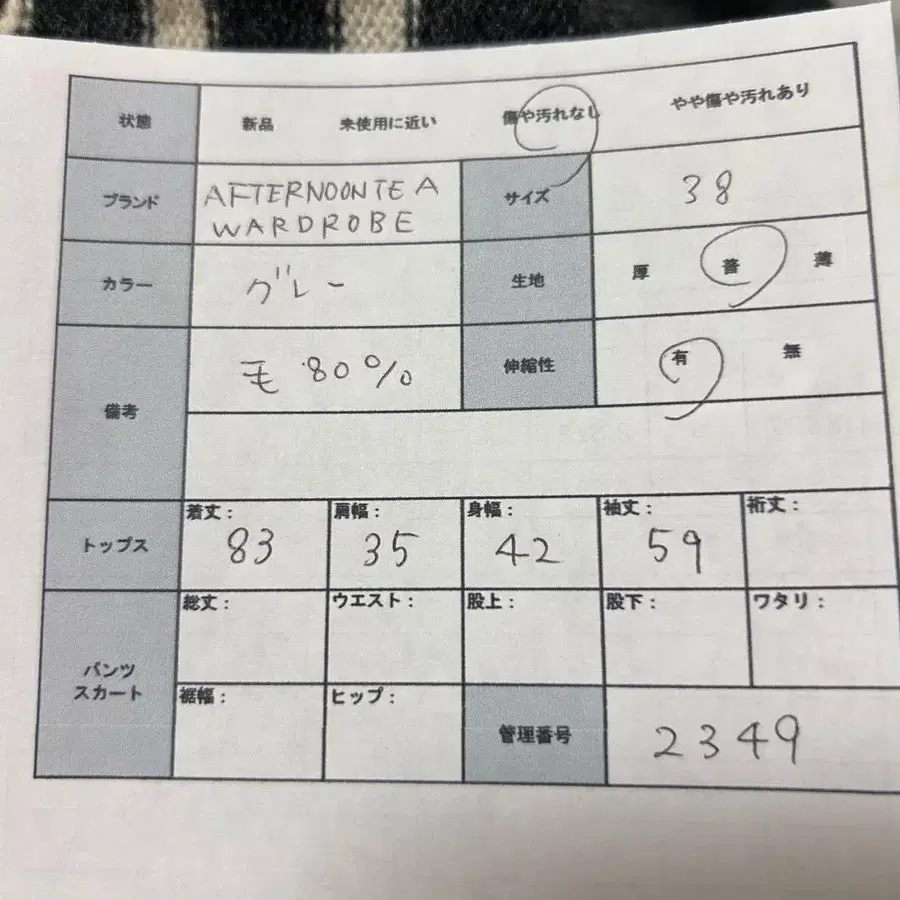 状態 新品 未使用に近い 傷や汚れなし やや傷や汚れあり
ブランド AFTERNOON TEA WARDROBE サイズ 38
カラー グレー 生地 厚 普 薄
備考 毛 80% 伸縮性 有 無
トップス 着丈: 83 肩幅: 35 身幅: 42 袖丈: 59 裄丈:
パンツ スカート 総丈: ウエスト: 股上: 股下: ワタリ:
裾幅: ヒップ: 管理番号 2349